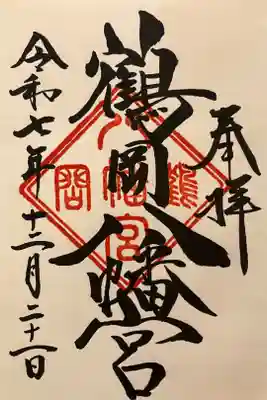 奉拝
鶴岡八幡宮
令和七年十二月二十一日
鶴
八幡宮
岡